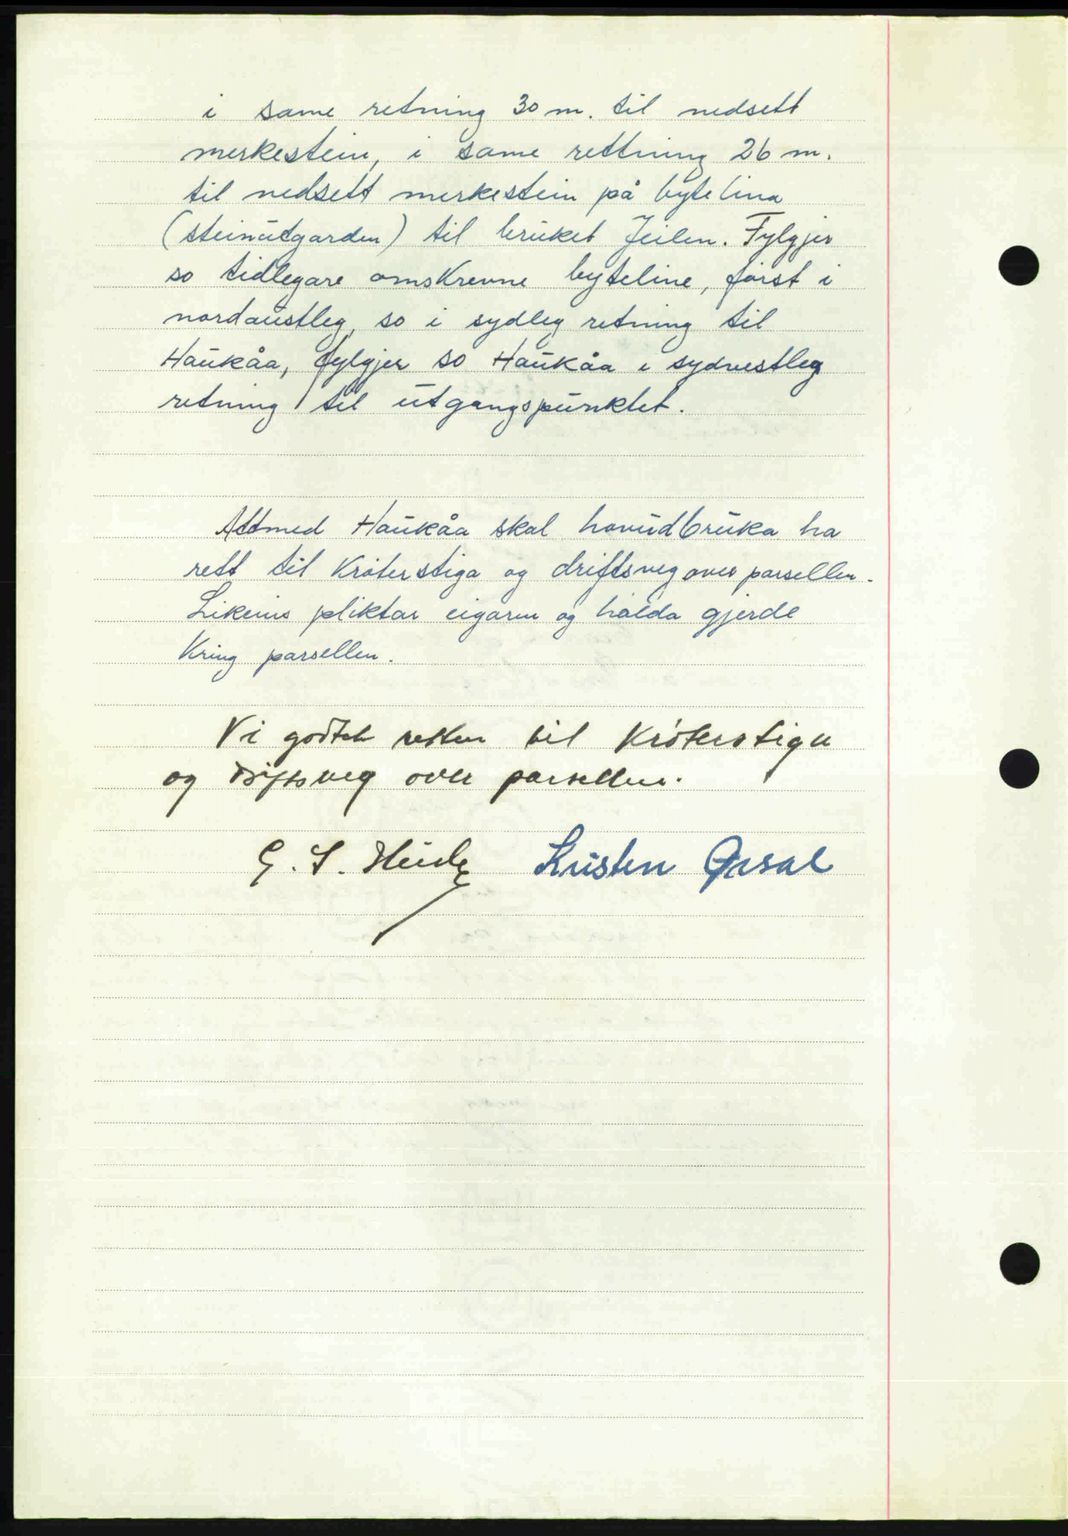 i same retning 30 m. til nedsett
merkestein, i same rettning 26 m.
til nedsett merkestein på bytelina
(steinutgarden) til bruket Jeilen. Fylgjer
so tidlegare omskrevne byteline, först i
nordaustleg, so i sydleg retning til
Haukåa, fylgjer so Haukåa i sydvestleg
retning til utgangspunktet.
Attmed Haukåa skal hovudbruka ha
rett til Kröterstiga og driftsveg over parsellen.
Likeins pliktar eigaren og halda gjerde
Kring parsellen.
Vi godtek retten til Kröterstiga
og driftsveg over parsellen.
G. S. Kristen Ørsal